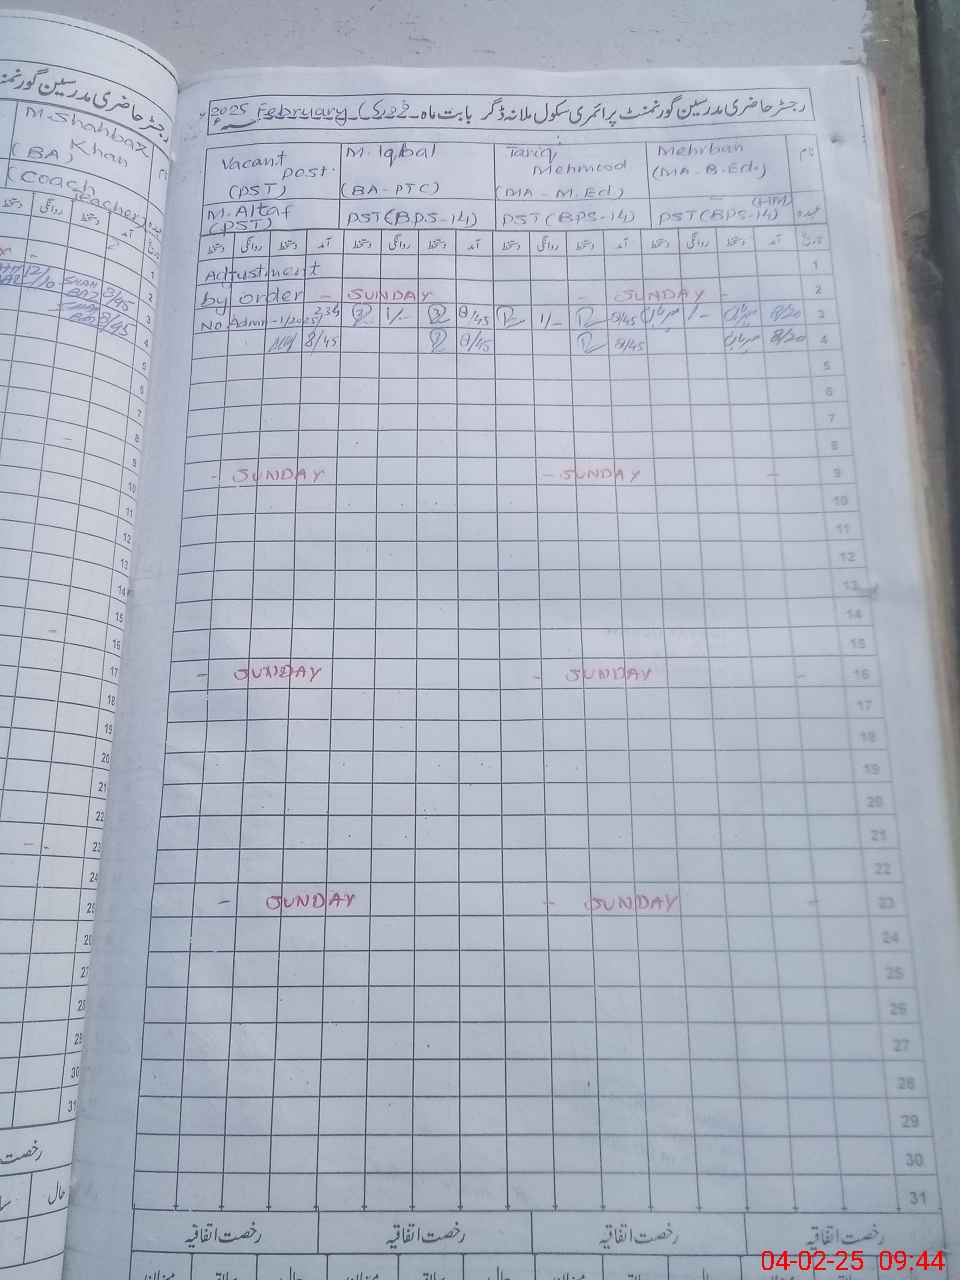 رجسٹر حاضری مدرسین گورنمنٹ
M. Shahbaz
Khan
(BA)
(Coach
Teacher)
رجسٹر حاضری مدرسین گورنمنٹ پرائمری سکول ملانہ ڈگر بابت ماہ فروری (February 2025
Vacant post. (PST) M. Iqbal (BA-PTC) Tariq Mehmood (MA-M.Ed) Mehrban (MA-B.Ed.) نام
M. Altaf (PST) PST(B.P.S-14) PST(BPS-14) PST(BPS-14) (HM) عہدہ
دستخط روانگی دستخط آمد دستخط روانگی دستخط آمد دستخط روانگی دستخط آمد دستخط روانگی دستخط آمد تاریخ
Adjustment 1
by order - SUNDAY - SUNDAY - 2
No Admn 1/- 8/45 1/- 8/45 مہربان 1/- مہربان 8/20 3
8/45 8/45 8/45 مہربان 8/20 4
5
6
7
8
- SUNDAY - SUNDAY - 9
10
11
12
13
14
15
- SUNDAY - SUNDAY - 16
17
18
19
20
21
22
- SUNDAY - SUNDAY - 23
24
25
26
27
28
29
30
31
رخصت اتفاقیہ رخصت اتفاقیہ رخصت اتفاقیہ رخصت اتفاقیہ
میزان سابقہ حال میزان سابقہ حال میزان سابقہ حال میزان سابقہ
04-02-25 09:44